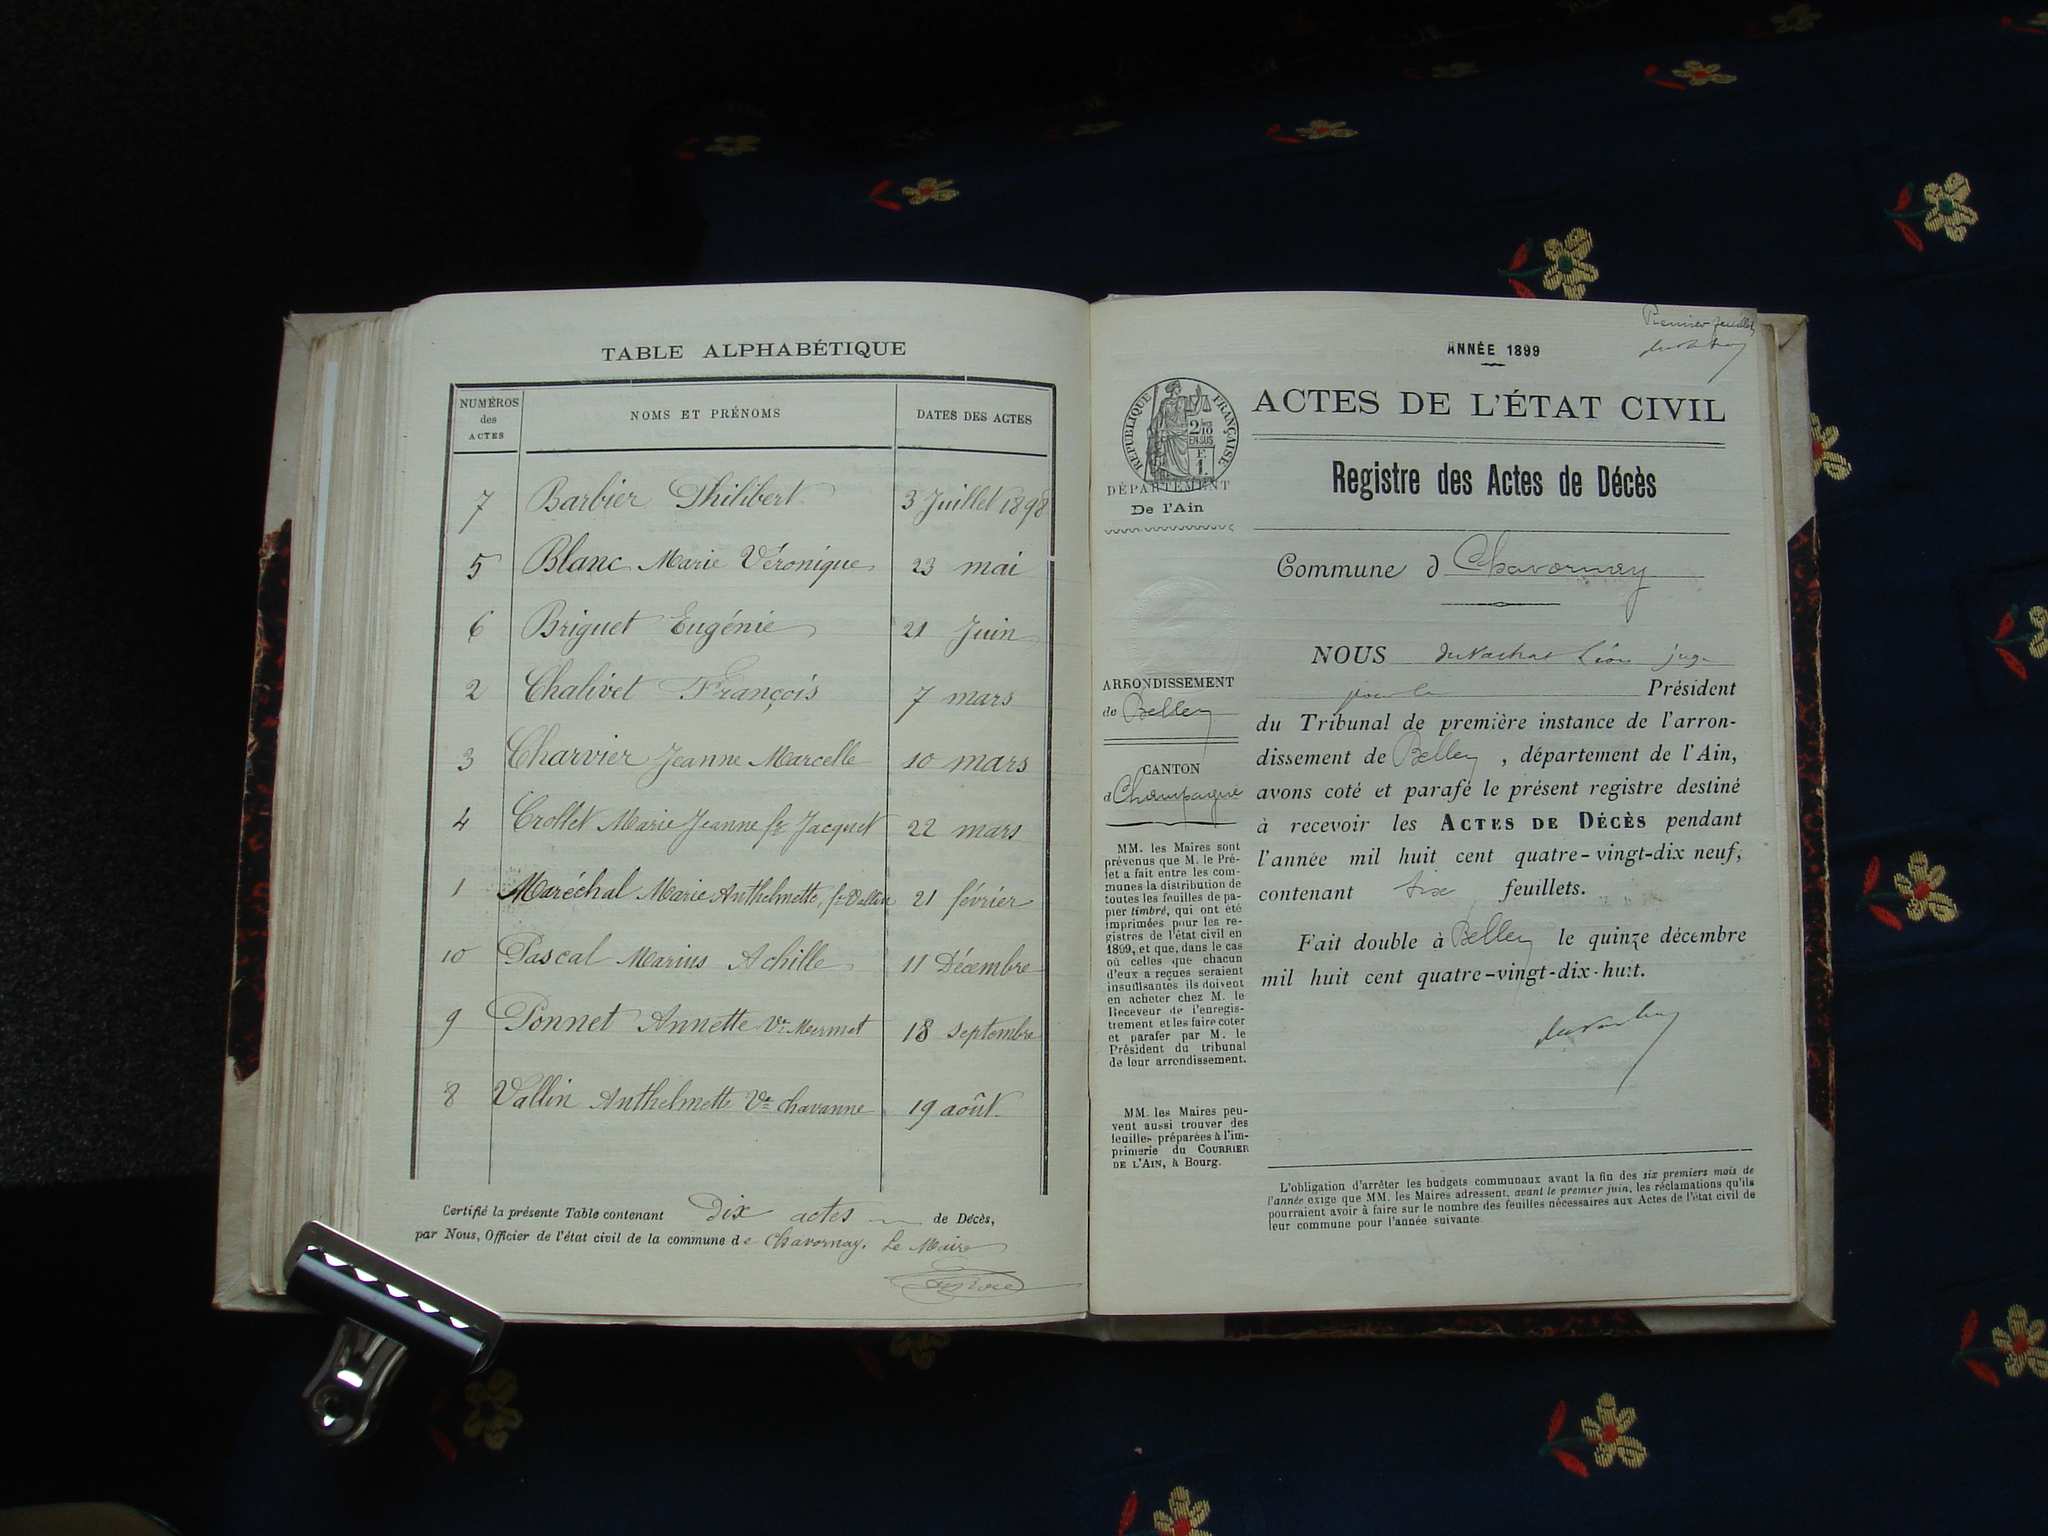 TABLE ALPHABÉTIQUE
NUMÉROS des ACTES
NOMS ET PRÉNOMS
DATES DES ACTES
7 Barbier Philibert 3 Juillet 1898
5 Blanc Marie Véronique 23 mai
6 Briguet Eugénie 21 Juin
2 Chalivet François 7 mars
3 Charvier Jeanne Marcelle 10 mars
4 Crollet Marie Jeanne fe Jacquet 22 mars
1 Maréchal Marie Anthelmette, fe Vallin 21 février
10 Pascal Marius Achille 11 Décembre
9 Ponnet Annette Ve Mermet 18 septembre
8 Vallin Anthelmette Ve Chavanne 19 août
Certifié la présente Table contenant Dix actes de Décès,
par Nous, Officier de l'état civil de la commune de Chavornay. Le Maire
Premier feuillet
ANNÉE 1899
ACTES DE L'ÉTAT CIVIL
RÉPUBLIQUE FRANÇAISE
2/10 EN SUS
E. 1.
DÉPARTEMENT
De l'Ain
Registre des Actes de Décès
Commune d Chavornay
ARRONDISSEMENT
de Belley
CANTON
d Champagne
MM. les Maires sont
prévenus que M. le Pré-
fet a fait entre les com-
munes la distribution de
toutes les feuilles de pa-
pier timbré, qui ont été
imprimées pour les re-
gistres de l'état civil en
1899, et que, dans le cas
où celles que chacun
d'eux a reçues seraient
insuffisantes ils doivent
en acheter chez M. le
Receveur de l'enregis-
trement et les faire coter
et parafer par M. le
Président du tribunal
de leur arrondissement.
MM. les Maires peu-
vent aussi trouver des
feuilles préparées à l'im-
primerie du COURRIER
DE L'AIN, à Bourg.
NOUS Léon juge
pour le Président
du Tribunal de première instance de l'arron-
dissement de Belley, département de l'Ain,
avons coté et parafé le présent registre destiné
à recevoir les ACTES DE DÉCÈS pendant
l'année mil huit cent quatre-vingt-dix neuf,
contenant six feuillets.
Fait double à Belley le quinze décembre
mil huit cent quatre-vingt-dix-huit.
L'obligation d'arrêter les budgets communaux avant la fin des six premiers mois de
l'année exige que MM. les Maires adressent, avant le premier juin, les réclamations qu'ils
pourraient avoir à faire sur le nombre des feuilles nécessaires aux Actes de l'état civil de
leur commune pour l'année suivante.